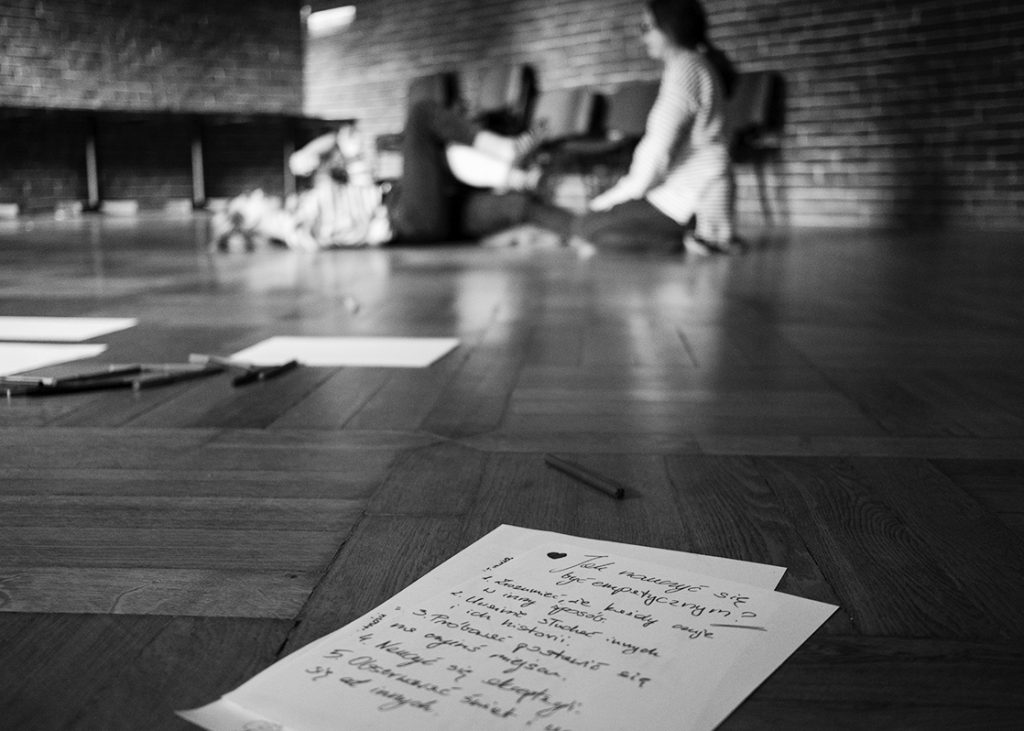 Jak nauczyć się
być empatycznym?
1. Zrozumieć, że każdy czuje
w inny sposób.
2. Uważnie słuchać innych
i ich historii.
3. Próbować postawić się
na czyimś miejscu.
4. Nauczyć się
5. Obserwować świat i
się od innych.